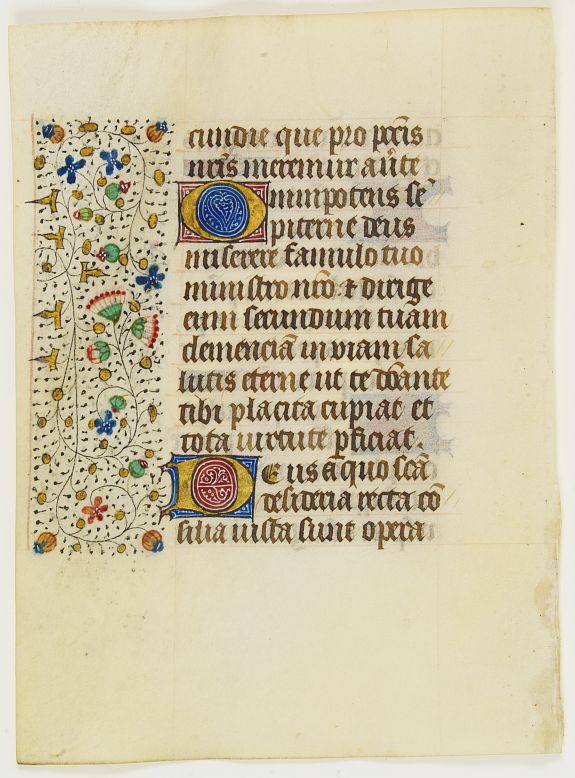 cundie que pro pctis
nris meremur aūte
Omnipotens se
piterne deus
miserere famulo tuo
ministro nro ⁊ dirige
eum secundum tuam
clemenciā in viam sa
lutis eterne ut te dōante
tibi placita cupiat et
tota uirtute pficiat.
Deus a quo scā
desideria recta cō
silia iusta sunt opera